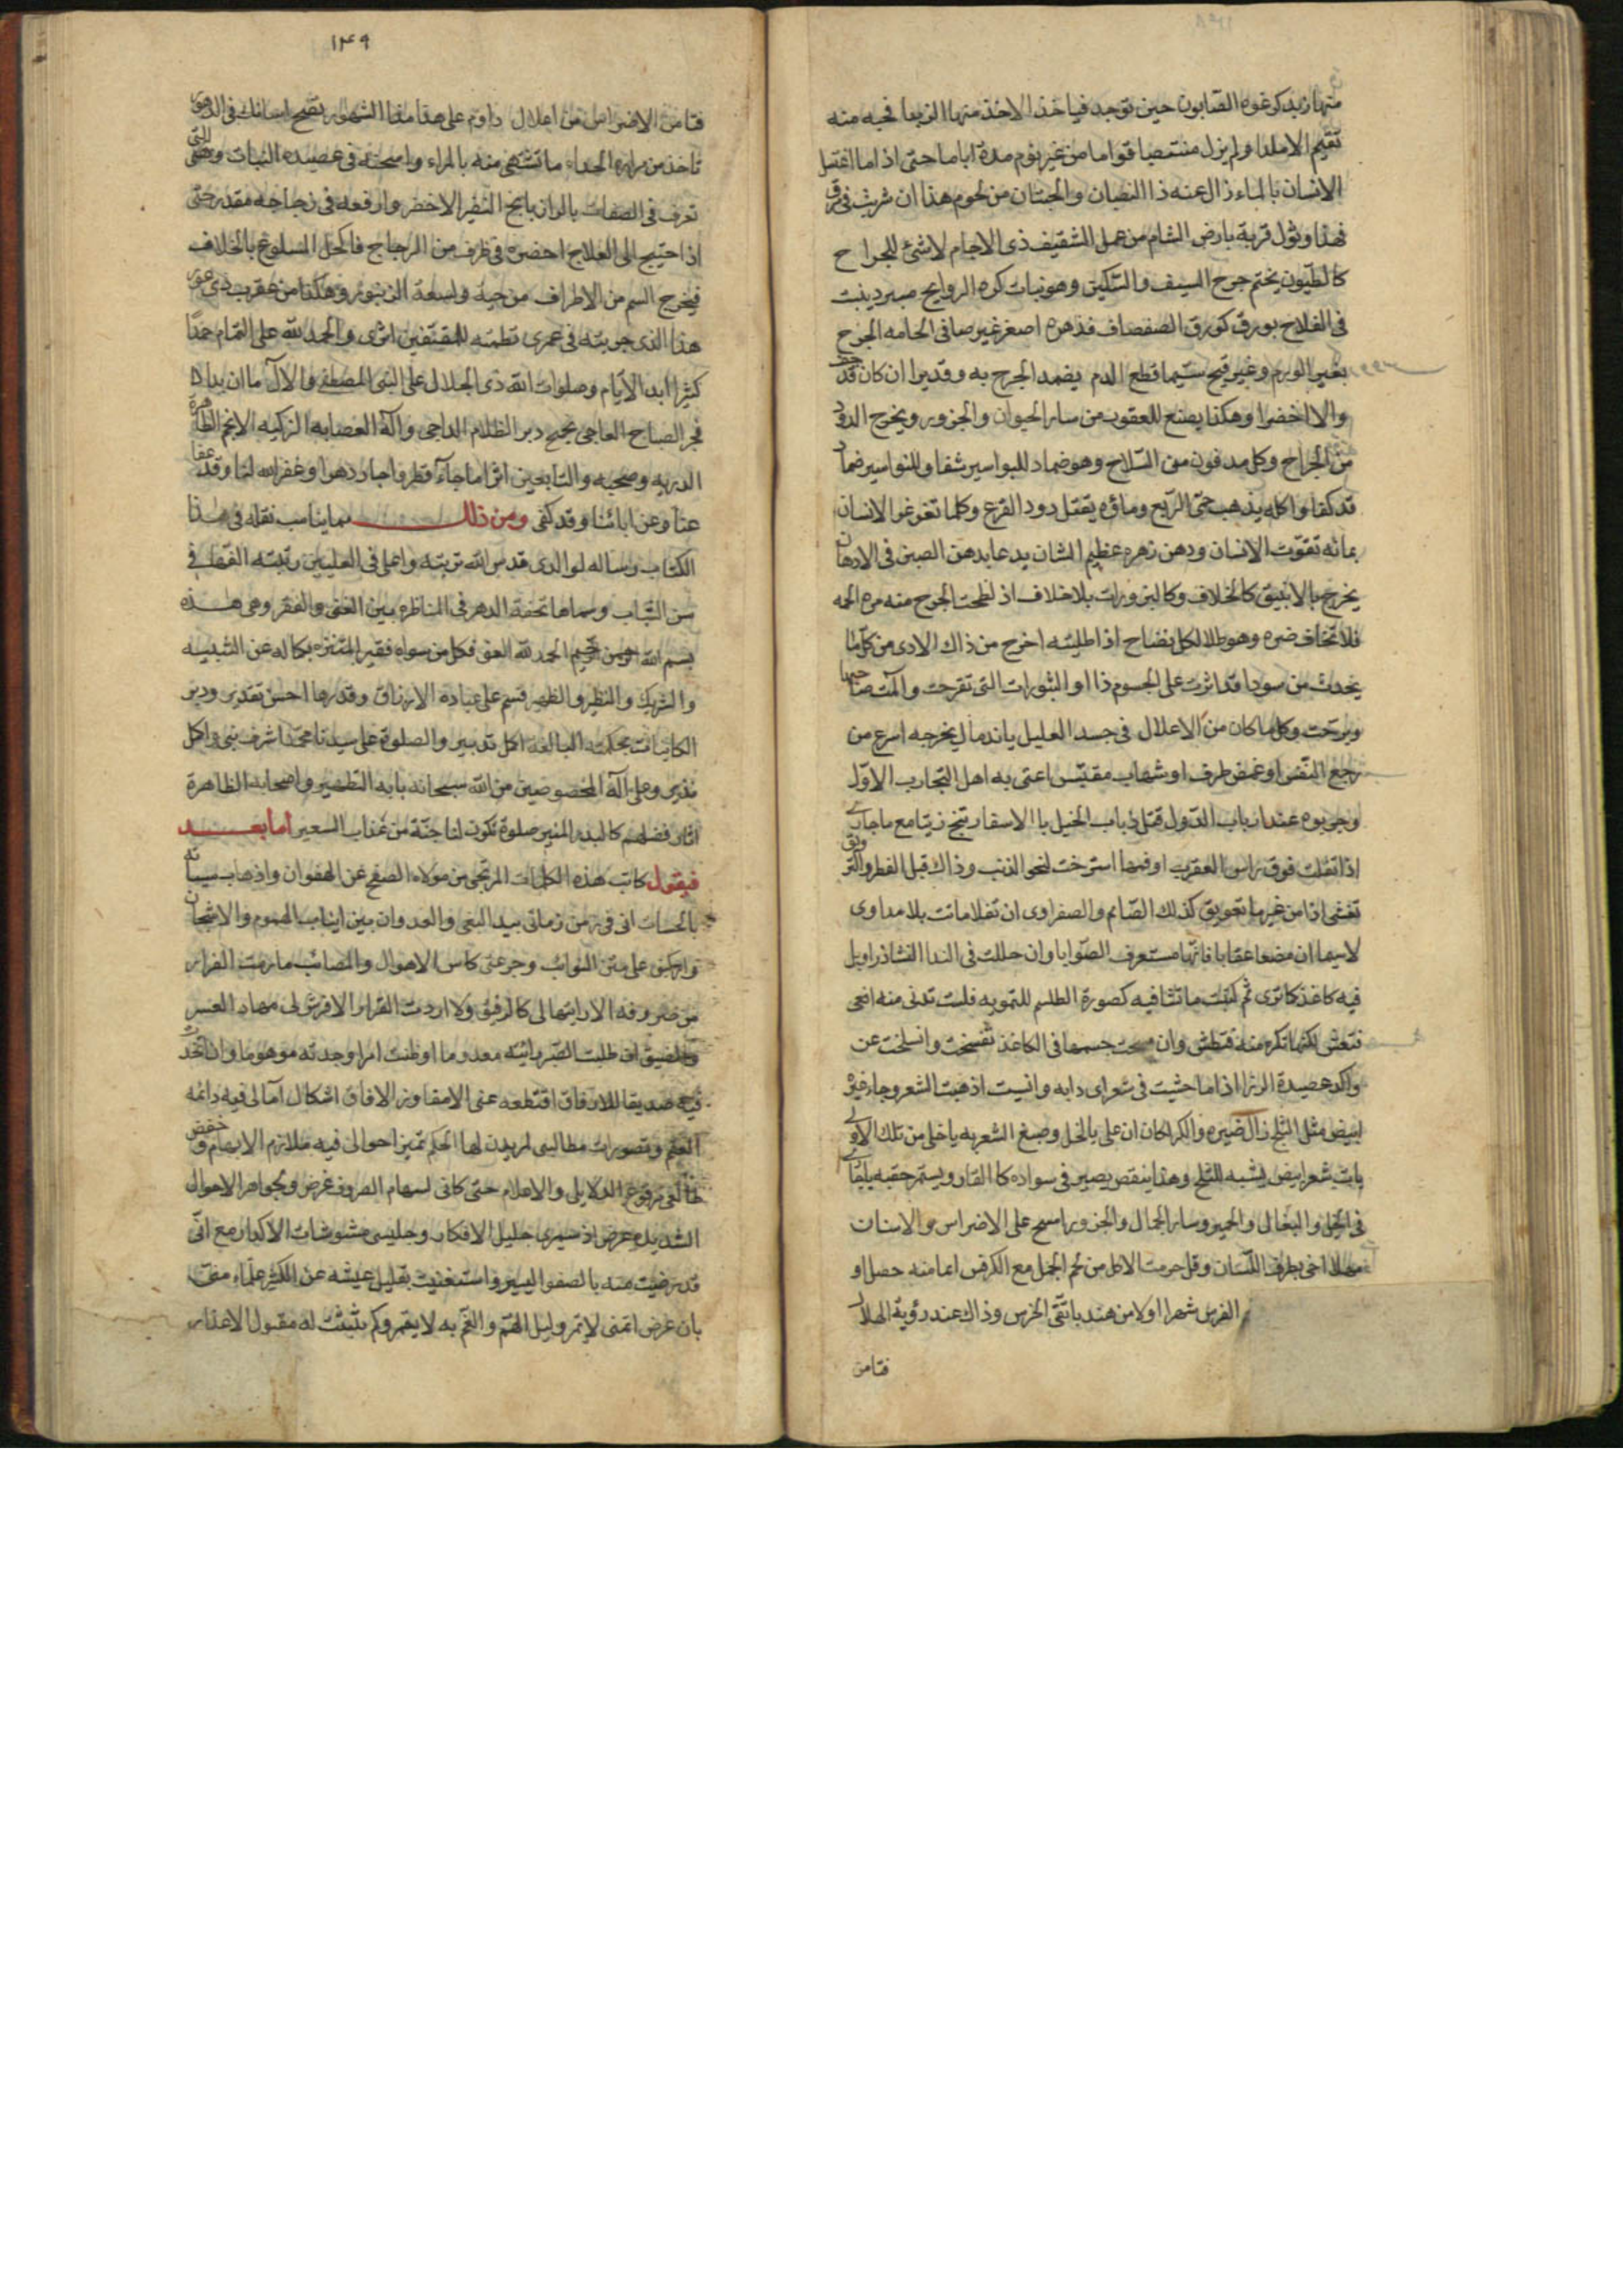 منها زبد كرغوه الصابون حين توجد فياخذ الاخذ منها الزبعا فحبه منه
تقيم الاملدا ولم يزل منتصبا قواما من غير نوم مدة اياما حتى اذ اما اغتسل
الانسان بالماء زال عنه ذا النصبان والجبتان من لحوم هذا ان شربت فى رق
فهذا وثول قرية بارض الشام من عمل الشقيف ذى الاجام لا شئ للجراح
كالطيون يختم جرح السيف والسكين وهو نبات كره الروايح مبرد ينبت
فى الفلاح بورق كورق الصفصاف فذهره اصفر غير صافى الحامه الجرح
بغير الورم وغير قيح سيما قطع الدم يضمد الجرح به وقديرا ان كان قد
والا اخضرا وهكذا يصنع للعقوب من ساير الحيوان والجزور ويخرج الدود
من الجراح وكل مدفون من السلاح وهو ضماد للبواسير شفا وللنواسير ضماد
قد كفا واكله يذهب حمى الربع وماؤه يقتل دود القرع وكلما تغرغر الانسان
بمائه تقوت الاسنان ودهن زهره عظيم الشان يدعا بدهن الصين فى الادهان
يخرج بالانبيق كالخلاف وكالبزورات بلا خلاف اذ لطخت الجرح منه مره الحمه
فلا تخاف ضره وهو طلا لكل نضاح اذا طليته اخرج من ذاك الاذى من كل ما
يحدث من سودا قد اثرت على الجسوم ذا او البثورات التى تقرحت والمت صاحبها
وبرحت وكل ما كان من الاعلال فى جسد العليل باندمال يخرجه اسرع من
رجع النفس او غمض طرف او شهاب مقتبس اعتنى به اهل التجارب الاول
وجربوه عند ارباب الدول قتل ذباب الخيل بالاسفار تنج زيتا مع ماجارى
اذا تفلت فوق راس العقرب او فمها استرخت لنحو الذنب وذاك قبل الفطر والترويق
تغشى اذا من غير ما تعويق كذلك الصائم والصفراوى ان تفلا ماتت بلا مداوى
لا سيما ان مضغا عقابا فانها مستعرف الصوابا وان حللت فى الندا النشاذر اوبل
فيه كاغذ كا ترى ثم كتبت ما تشا فيه كصورة الطلسم للتمويه فليت تدنى منه افعى
فتعش لكنها تكره منه فتطش وان مسحت جسمها فى الكاغذ تفسخت وانسلخت عن
واكد عصيدة الرنرا اذا ما حشيت فى شعر اى دابه وانسيت اذهبت الشعر وجاء غيره
ابيض مثل الثلج زال ضيره والكر اكان ان على بالخل وصبغ الشعر به يا خلى من تلك الاولى
يات شعر ابيض يشبه الثلج وهذا ينقض يصير فى سواده كا القار ويستمر حقبه يليقا
فى الخيل والبغال والحمير وساير الجمال والجزور امسح على الاضراس والاسنان
مهلا اخى بطرف اللسان وقل حرمت الاكل من لحم الجمل مع الكرفس اعما منه حصل او
الفرس شهرا اولا من هند با تقى الخرس وذاك عند رؤية الهلال
فتامن
١٤٩
فتامن الاضراس من اعلال داوم على هذا مدا الشهور تصح اسنانك فى الدهور
تاخذ من مراره الحداء ما تشتهى منه بالمراء واسحقه فى عصيده النبات وهى التى
تعرف فى الصفات بالرازيانج النضير الاخضر وارفعه فى زجاجه مقدر حتى
اذا احتيج الى العلاج احضره فى ظرف من الزجاج فاكحل الملسوع بالخلاف
فيخرج السم من الاطراف من حية ولسعة الزنبور وهكذا من عقرب ذى عور
هذا الذى جربته فى عمرى نظمته للمقتفين اثرى والحمد لله على التمام حمدا
كثيرا ابد الايام وصلوات الله ذى الجلال على النبى المصطفى والال ما ان بدا
فجر الصباح العاجى بجنح دبر الظلام الداجى واله العصابه الزكيه الانجم الظاهرة
الدريه وصحبه والتابعين اثرا ما جاء قطر فاجاد دهرا وغفر الله لنا وقد عفا
عنا وعن ابائنا وقد كفى ومن ذلك مما يناسب نقله فى هذا
الكتاب رساله لوالدى قدس الله تربته واعلى فى العليين رتبته الفها فى
سن الشباب وسماها تحفة الدهر فى المناظره بين الغنى والفقر وهى هذه
بسم الله الرحمن الرحيم الحمد لله الغنى فكل من سواه فقير المتنزه بكماله عن الشبيه
والشريك والنظير والظهير قسم على عباده الارزاق وقدرها احسن تقدير ودبر
الكاينات بحكمته البالغه اكمل تدبير والصلوة على سيدنا محمد اشرف نبى واكمل
نذير وعلى اله المخصوصين من الله سبحانه باية التطهير واصحابه الظاهرة
اثار فضلهم كالبدر المنير صلوة تكون لنا جنة من عذاب السعير اما بعد
فيقول كاتب هذه الكلمات المرتجى من مولاه الصفح عن الهفوات واذهاب سيئاته
بالحسنات انى فى زمن زمانى بيد البغى والعدوان بين انياب الهموم والاشجان
واركبنى على متن النوايب وجرعنى كاس الاهوال والمصائب ما رمت الفرار
من ضروفه الا رايتها لى كالرفيق ولا اردت القرار الا فرش لى مهاد العسر
والضيق ان طلبت الصبر رايته معدوما او ظننت امرا وجدته موهوما وان اتخذت
فيه صديقا للارفاق اقتطعه عنى الامفاوز الافاق اشكال امالى فيه دائمه
العقم وتصورات مطالبى لم يدن لها الحكم تميز احوالى فيه ملازم الابهام وخفض
طالعى مرفوع الدلايل والاعلام حتى كانى لسهام الصروف غرض ولجواهر الاهوال
الشديده عرض اذ سميرى جليل الافكار وجليسى مشوشات الاكدار مع انى
قد رضيت منه بالصفو اليسير واستغنيت بقليل عيشه عن الكثير علما منى
بان غرض اتمنى لا يتم وليل الهم والغم به لا يقمر وكم بثثت له مقبول الاعذار